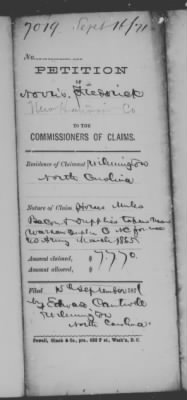 7019. Sept 16/71
No.
PETITION
OF
Norris, Frederick
New Hanover Co
TO THE
COMMISSIONERS OF CLAIMS.
Residence of Claimant Wilmington
North Carolina
Nature of Claim Horses Mules
Bacon & Supplies taken near
Warsaw Duplin C NC for use
US Army March 1865
Amount claimed, $ 7770.
Amount allowed, $
Filed September 1871
by Edward Cantwell
Wilmington
North Carolina
Powell, Ginck & Co., prs., 632 F st., Wash'n, D. C.